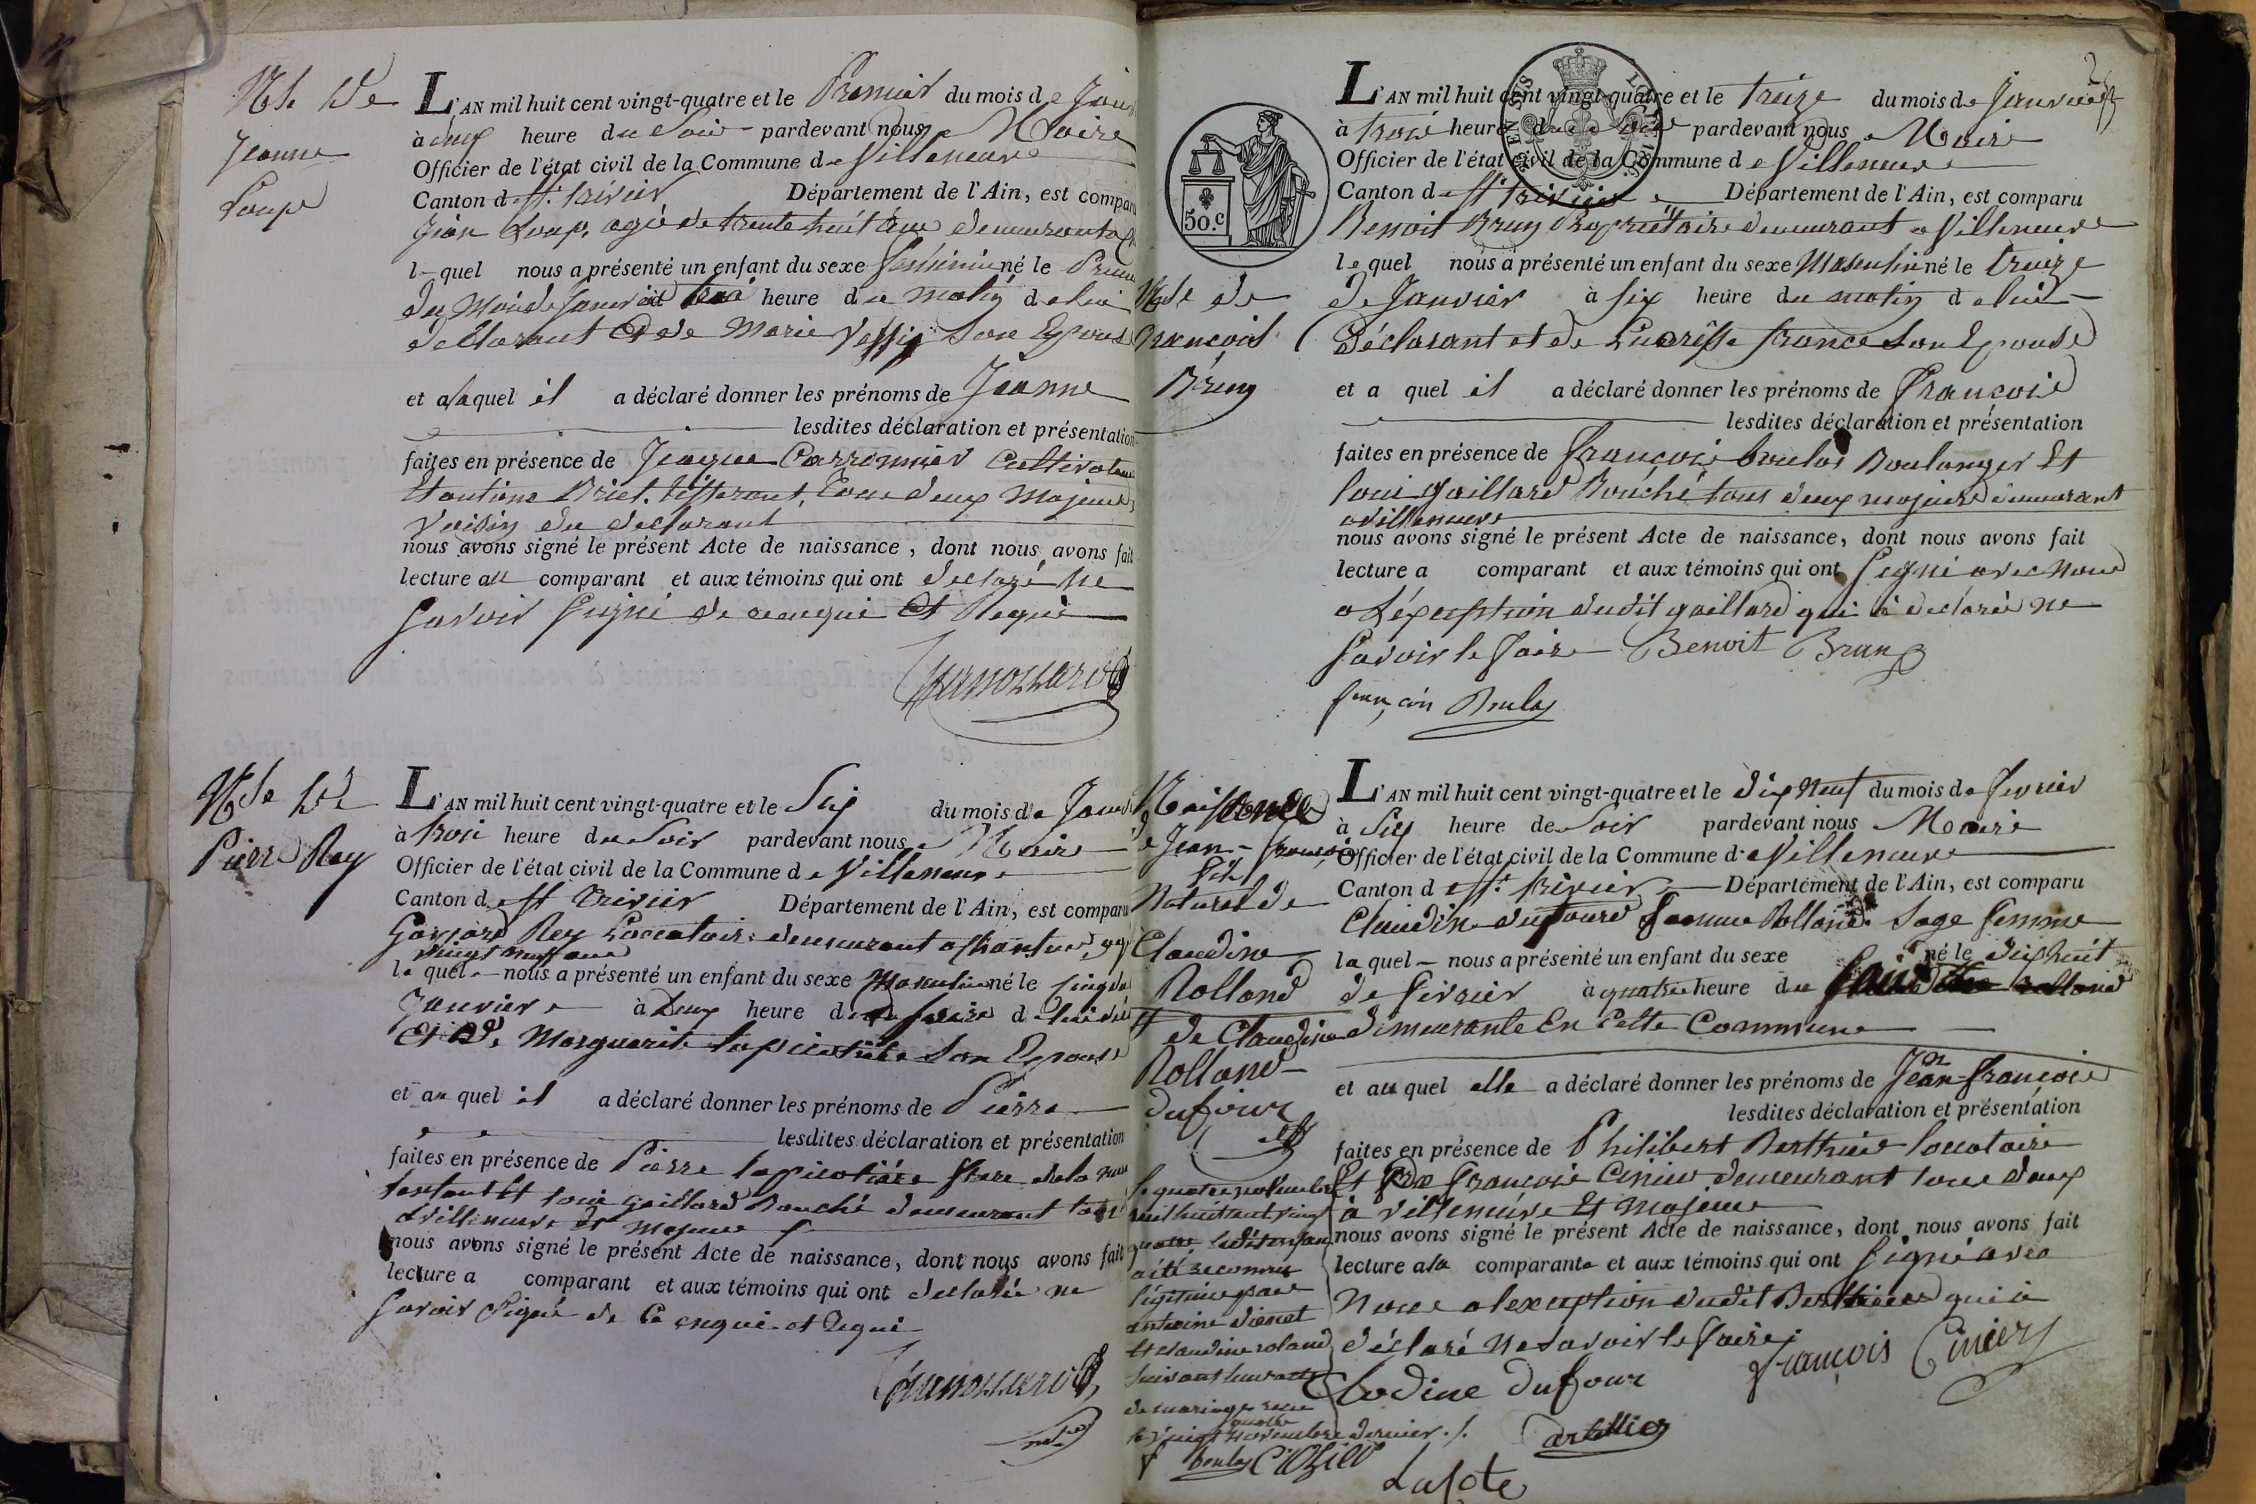 Nce de
Jeanne
Loup
L'AN mil huit cent vingt-quatre et le Premier du mois de Janv
à cinq heure du Soir pardevant nous Maire
Officier de l'état civil de la Commune de Villeneuve
Canton de St. trivier Département de l'Ain, est comparu
Jean Loup, agé de trente huit ans demeurant a
lequel nous a présenté un enfant du sexe feminin né le Premier
du Mois de Janvier à trois heure du matin de lui
declarant et de Marie Son Epouse
et a laquel il a déclaré donner les prénoms de Jeanne
lesdites déclaration et présentation
faites en présence de Jacque Carronnier Cultivateur
Et antoine Tisserant, tous deux Majeurs
Voisin du declarant
nous avons signé le présent Acte de naissance, dont nous avons fait
lecture au comparant et aux témoins qui ont declaré ne
Savoir Signé de ce enquis Et Requis
Nce de
Pierre Rey
L'AN mil huit cent vingt-quatre et le Six du mois de Janv
à trois heure du Soir pardevant nous Maire
Officier de l'état civil de la Commune de Villeneuve
Canton de St Trivier Département de l'Ain, est comparu
Rey Locataire demeurant a
vingt neuf ans
lequel nous a présenté un enfant du sexe Masculin né le Cinq de
Janvier à Deux heure de lui
Et de Marguerite lapicotière Son Epouse
et au quel il a déclaré donner les prénoms de Pierre
lesdites déclaration et présentation
faites en présence de Pierre lapicotière
et loui gaillard Bouché demeurant tous
a villeneuve et Majeur
nous avons signé le présent Acte de naissance, dont nous avons fait
lecture a comparant et aux témoins qui ont declaré ne
Savoir Signé de Ce enquis et Requis
50.C
Nce de
francois
Brun
L'AN mil huit cent vingt-quatre et le treize du mois de Janvier
à trois heure du Soir pardevant nous Maire
Officier de l'état civil de la Commune de Villeneuve
Canton de St trivier Département de l'Ain, est comparu
Benoit Brun Proprietaire demeurant a Villeneuve
lequel nous a présenté un enfant du sexe Masculin né le treize
de Janvier à Six heure du matin de lui
Déclarant et de france Son Epouse
et a quel il a déclaré donner les prénoms de François
lesdites déclaration et présentation
faites en présence de francois boulas Boulanger Et
loui gaillard Bouché tous deux majeurs demeurant
a villeneuve
nous avons signé le présent Acte de naissance, dont nous avons fait
lecture a comparant et aux témoins qui ont Signé avec Nous
a L'exception dudit gaillard qui à declaré ne
Savoir le faire Benoit Brun
françois Boulas
Naissance
de Jean-françois
fils
Naturel de
Claudine
Rolland
et de Claudine
Rolland
dufour
L'AN mil huit cent vingt-quatre et le dix Neuf du mois de fevrier
à Six heure de Soir pardevant nous Maire
Officier de l'état civil de la Commune de Villeneuve
Canton de St. trivier Département de l'Ain, est comparu
Claudine dufour femme Rolland Sage femme
laquel nous a présenté un enfant du sexe né le dix huit
de fevrier à quatre heure du Rolland
demeurante En Cette Commune
et au quel elle a déclaré donner les prénoms de Jean-françois
lesdites déclaration et présentation
faites en présence de Philibert Berthier locataire
Et françois Cinier demeurant tous deux
à villeneuve Et Majeur
nous avons signé le présent Acte de naissance, dont nous avons fait
lecture a la comparante et aux témoins qui ont Signé avec
Nous a lexception dudit Berthier qui à
déclaré Ne Savoir le faire
Clodine dufour françois Cinier
le quatre
mil huit cent vingt
quatre ledit enfant
a été reconnu
légitime par
antoine
Et claudine roland
suivant leur acte
de mariage
le vingt quatre novembre dernier
Lasote